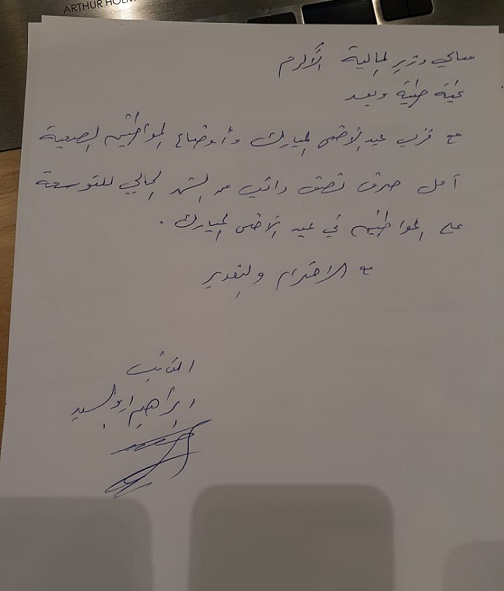 ARTHUR HOLM
معالي وزير المالية الأكرم
تحية طيبة وبعد
مع قرب عيد الأضحى المبارك وأوضاع المواطنين الصعبة
آمل صرف نصف راتب من الشهر الحالي للتوسعة
على المواطنين في عيد الأضحى المبارك.
مع الاحترام والتقدير
النائب
ابراهيم ابو السيد